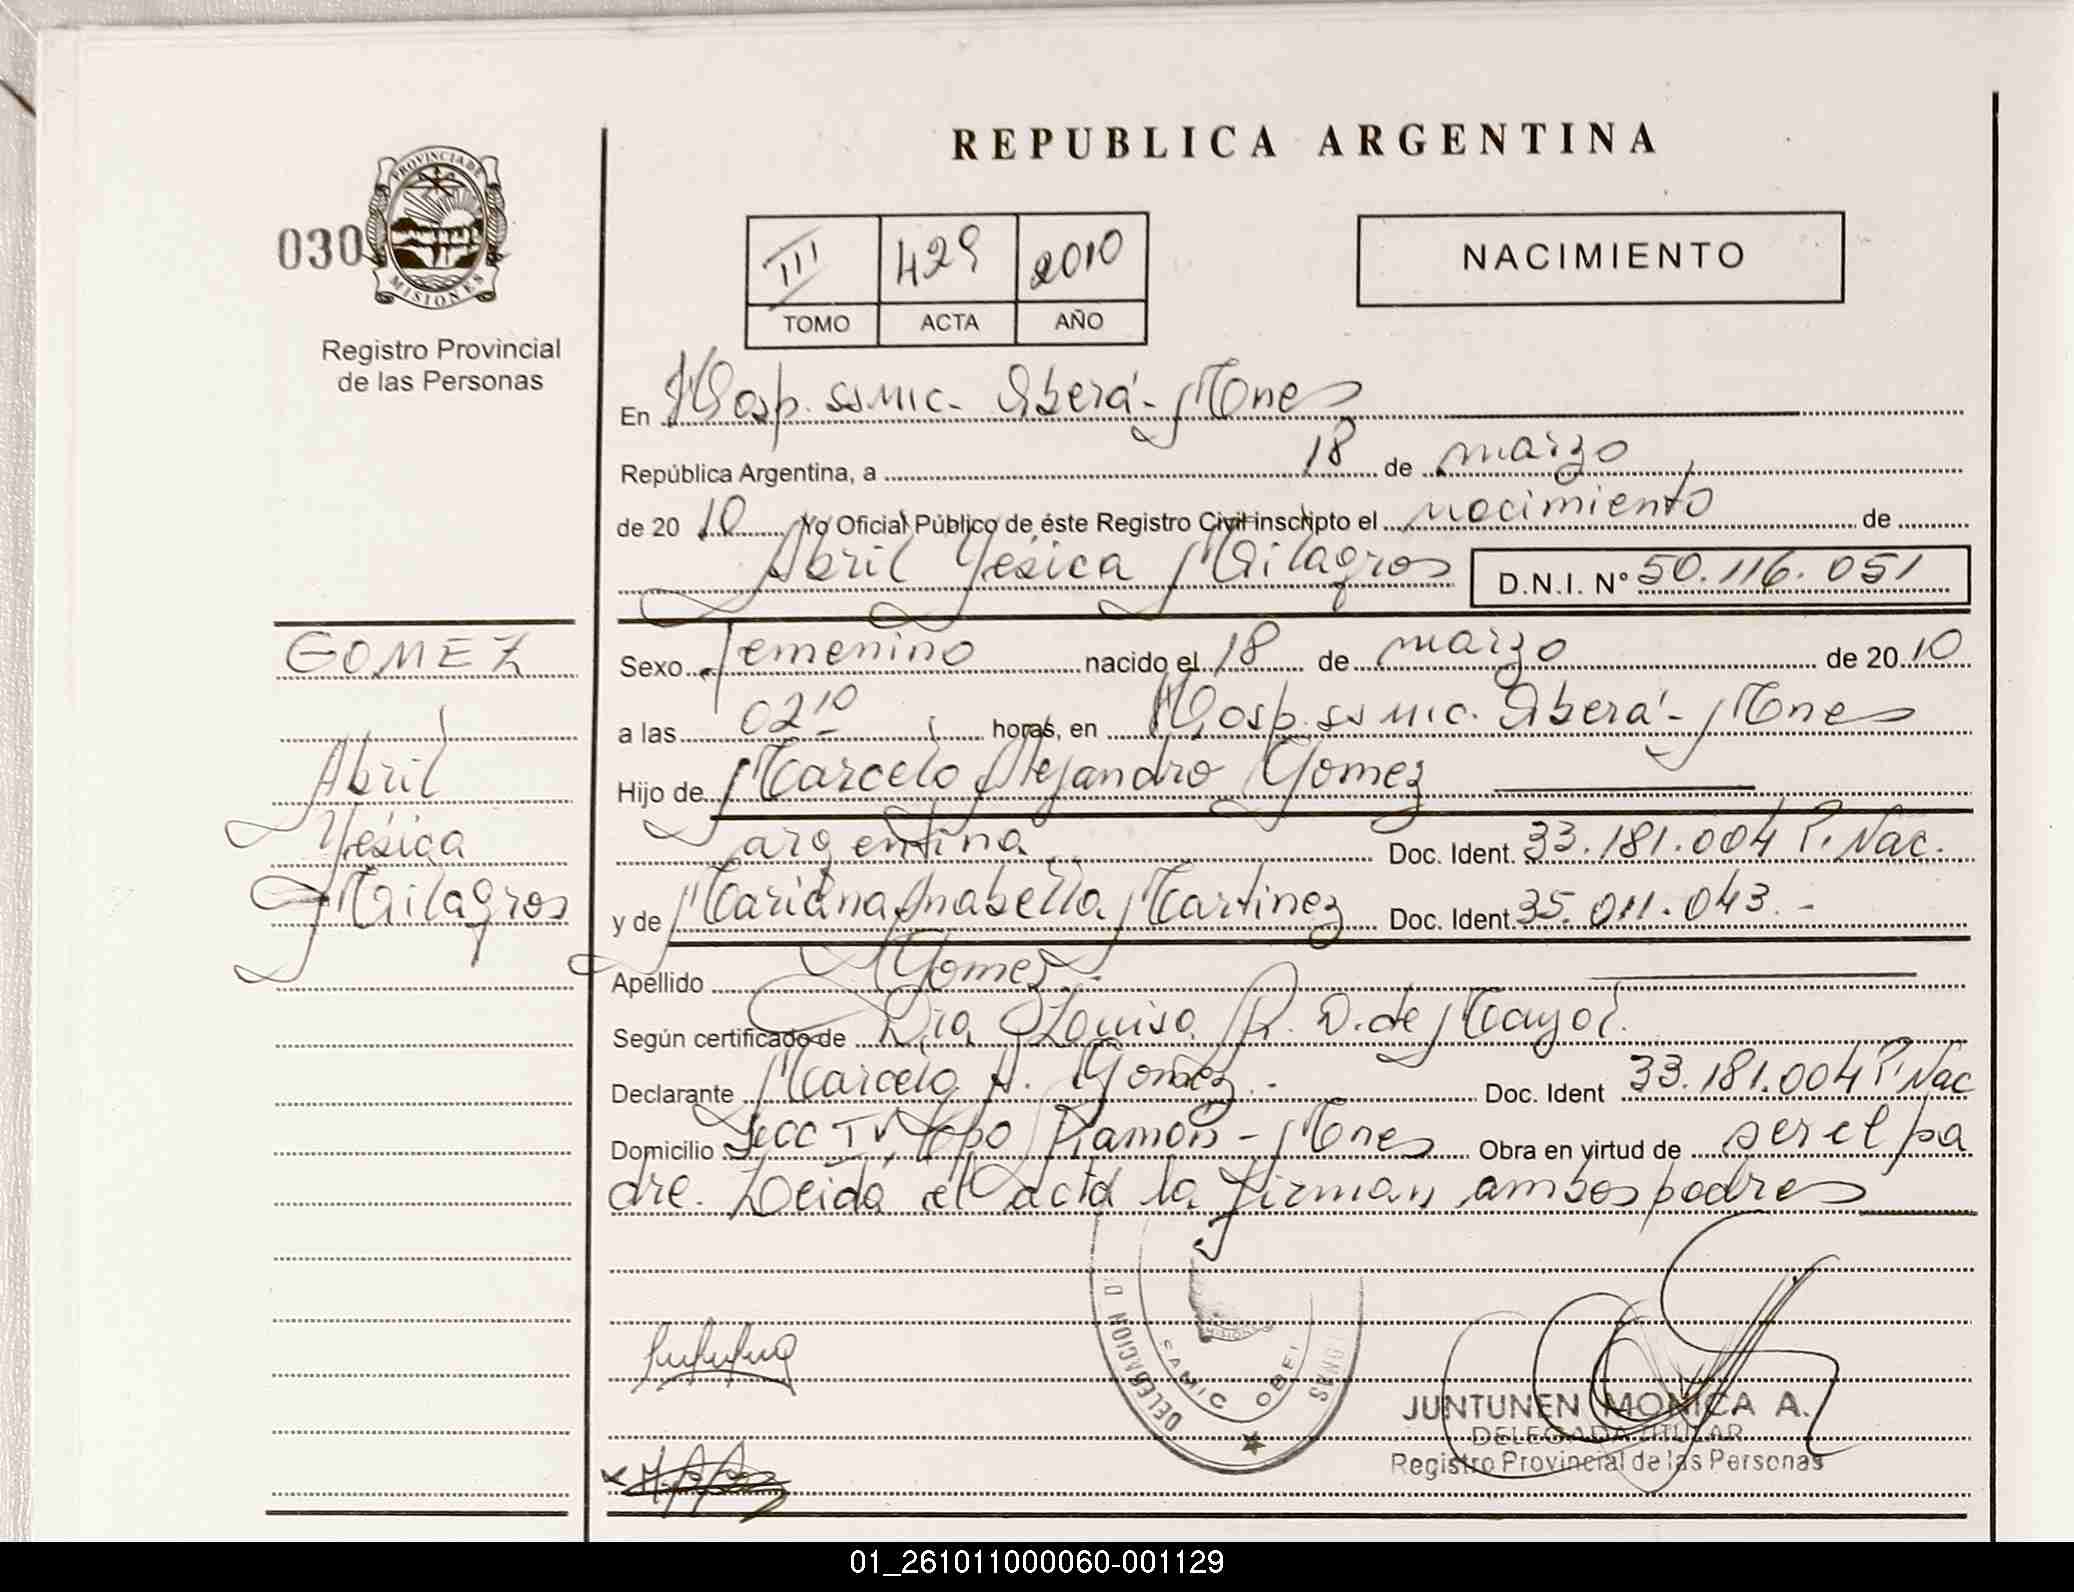 REPUBLICA ARGENTINA
030
PROVINCIA DE MISIONES
Registro Provincial
de las Personas
III 429 2010
TOMO ACTA AÑO
NACIMIENTO
En Hosp. ssmic. Oberá - Mnes
República Argentina, a 18 de marzo
de 20 10 Yo Oficial Público de éste Registro Civil inscripto el nacimiento de
Abril Yesica Milagros D.N.I. Nº 50.116.051
GOMEZ
Abril
Yésica
Milagros
Sexo femenino nacido el 18 de marzo de 20 10
a las 02 10 horas, en Hosp. ss mic. Oberá - Mnes
Hijo de Marcelo Alejandro Gomez
argentina Doc. Ident. 33.181.004 P. Nac.
y de Mariana Anabella Martinez Doc. Ident. 35.011.043.-
Apellido Gomez.-
Según certificado de Dra Louisa R. D. de Mayol.
Declarante Marcelo A. Gomez.- Doc. Ident 33.181.004 P. Nac
Domicilio Secc IV Lopo Ramon - Mnes Obra en virtud de ser el pa
dre. Leida el acta la firman ambos padres
DELEGACION
SAMIC OBE
MISIONES
JUNTUNEN MONICA A.
DELEGADA TITULAR
Registro Provincial de las Personas
01_261011000060-001129